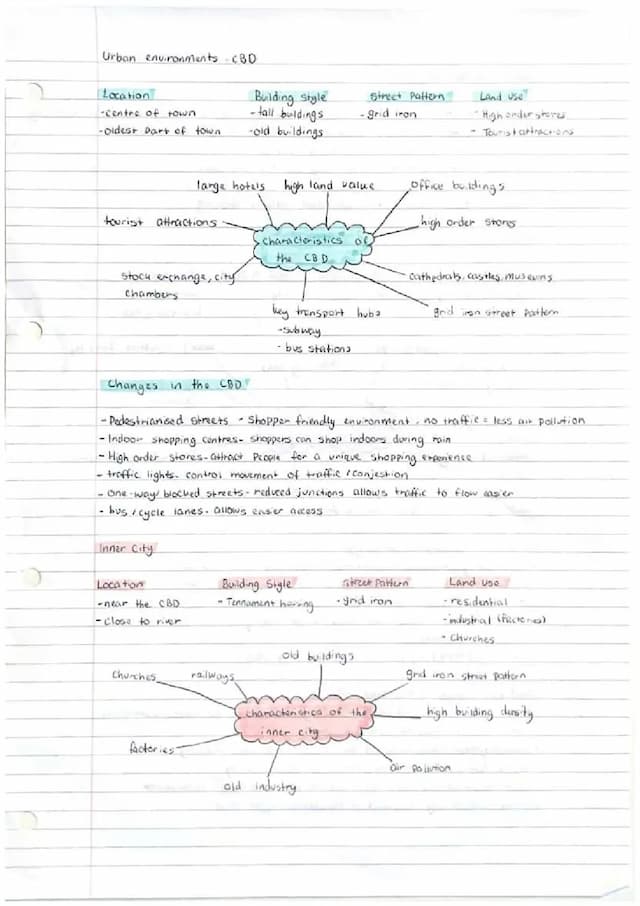 Urban environments - CBD
Location Building Style Street Pattern Land Use
- centre of town - tall buildings - grid iron - High order stores
- oldest part of town - old buildings - Tourist attractions
large hotels high land value office buildings
tourist attractions high order stores
characteristics of
the CBD
stock exchange, city cathedrals, castles, museums
chambers
key transport hubs grid iron street pattern
- subway
- bus stations
Changes in the CBD
- Pedestrianised streets - shopper friendly environment, no traffic = less air pollution
- Indoor shopping centres - shoppers can shop indoors during rain
- High order stores - attract people for a unique shopping experience
- traffic lights - control movement of traffic / conjestion
- one-way/blocked streets - reduced junctions allows traffic to flow easier
- bus/cycle lanes - allows easier access
Inner City
Location Building Style Street Pattern Land use
- near the CBD - Tennament housing - grid iron - residential
- close to river - industrial (factories)
- churches
old buildings
churches railways grid iron street pattern
characteristics of the high building density
inner city
factories
air pollution
old industry